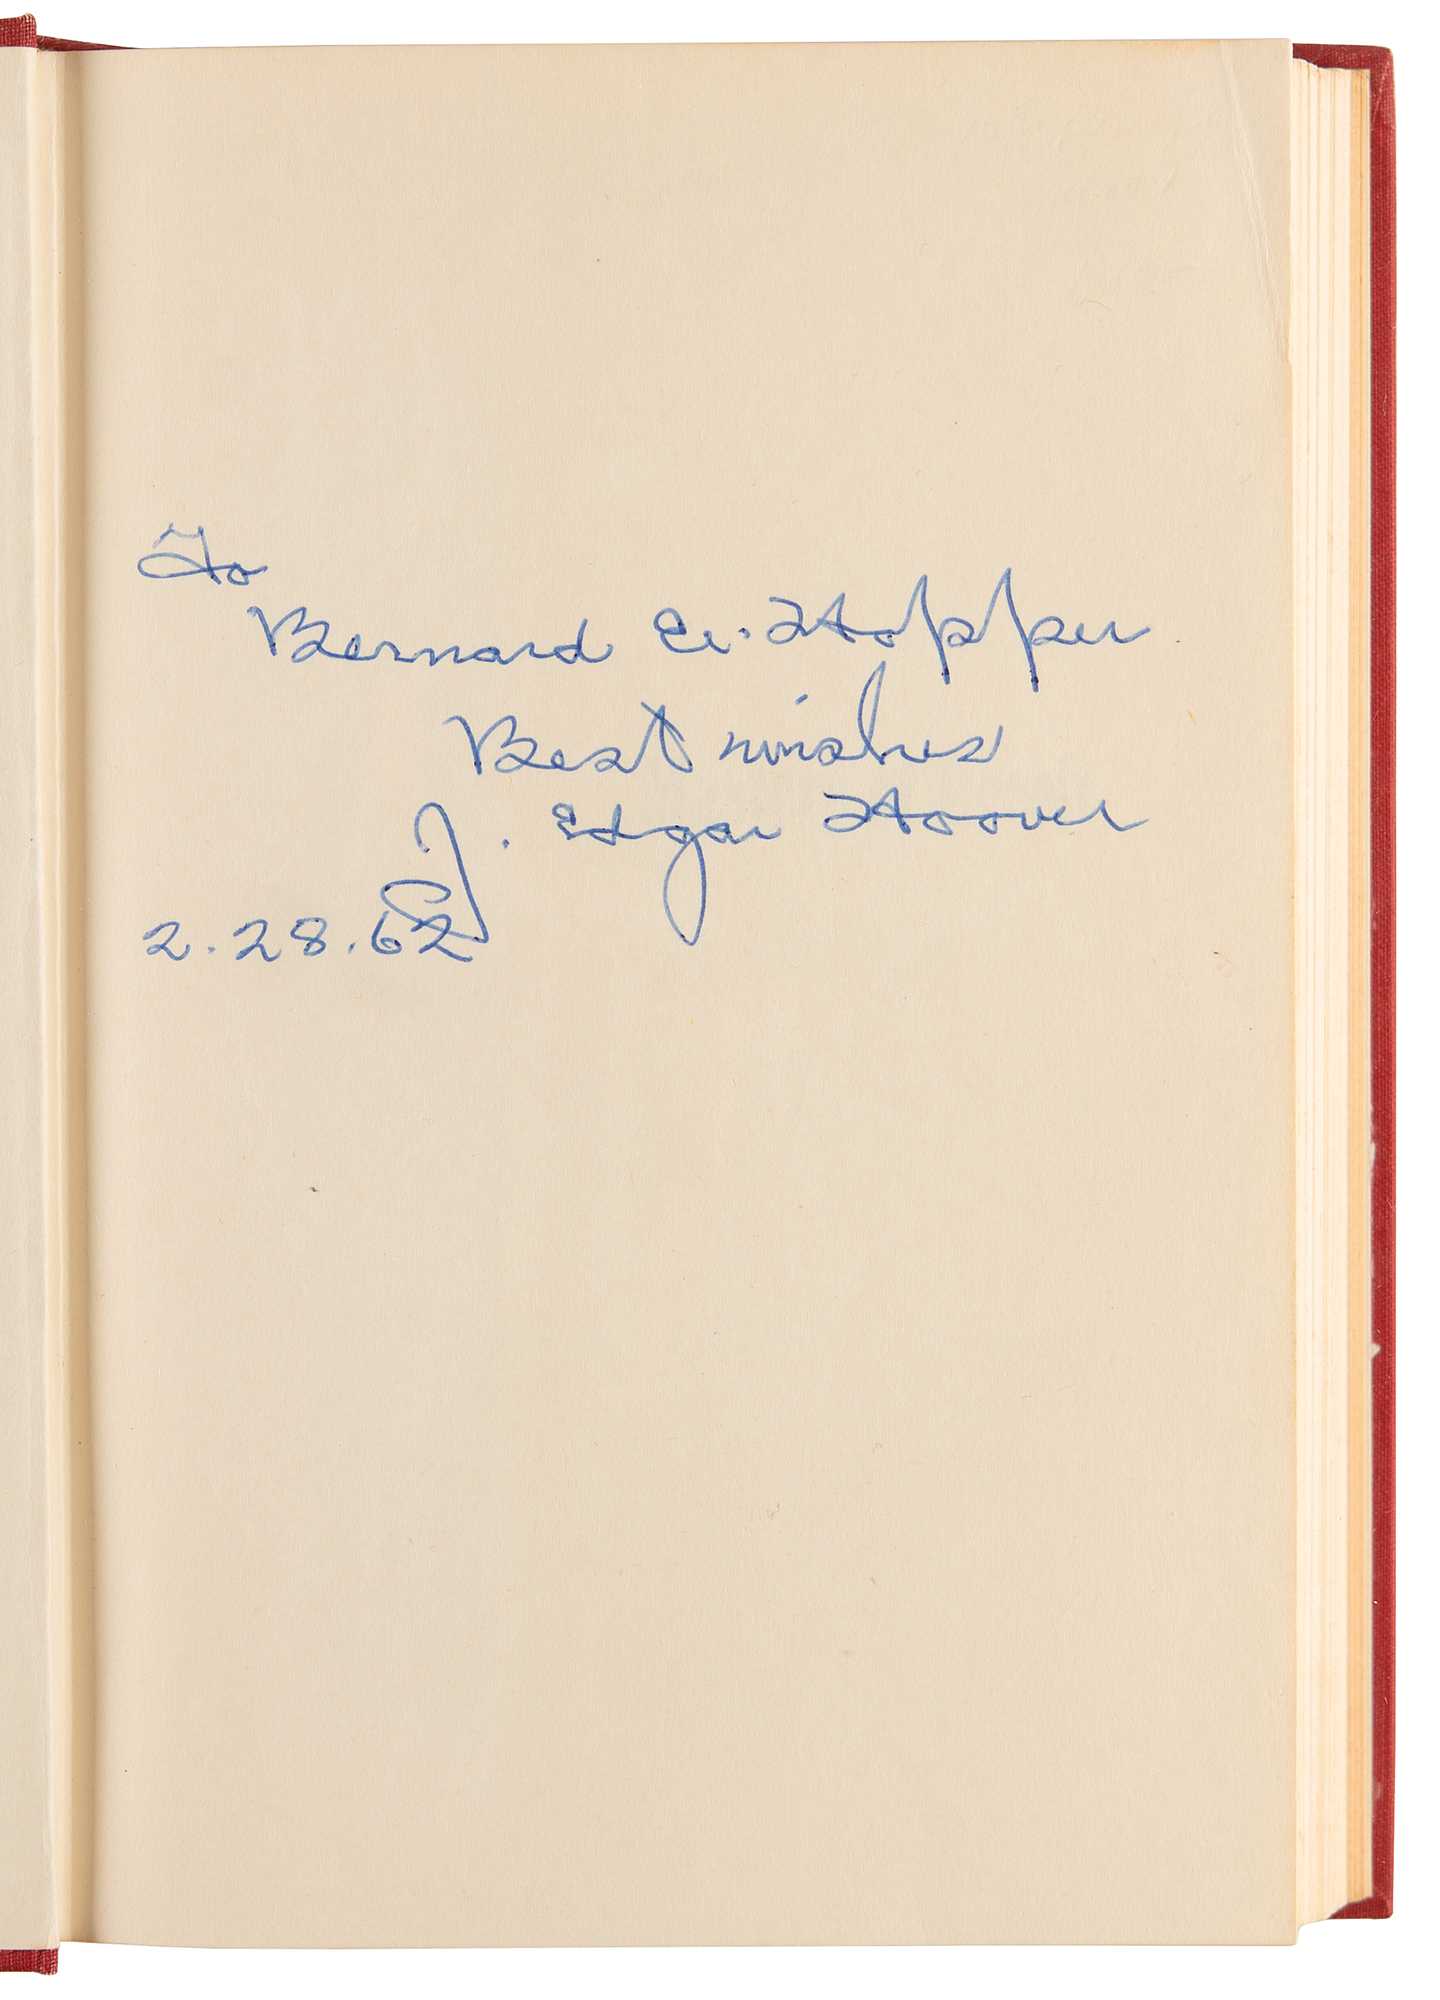 To
Bernard Er. Hopper
Best wishes
J. Edgar Hoover
2.28.62